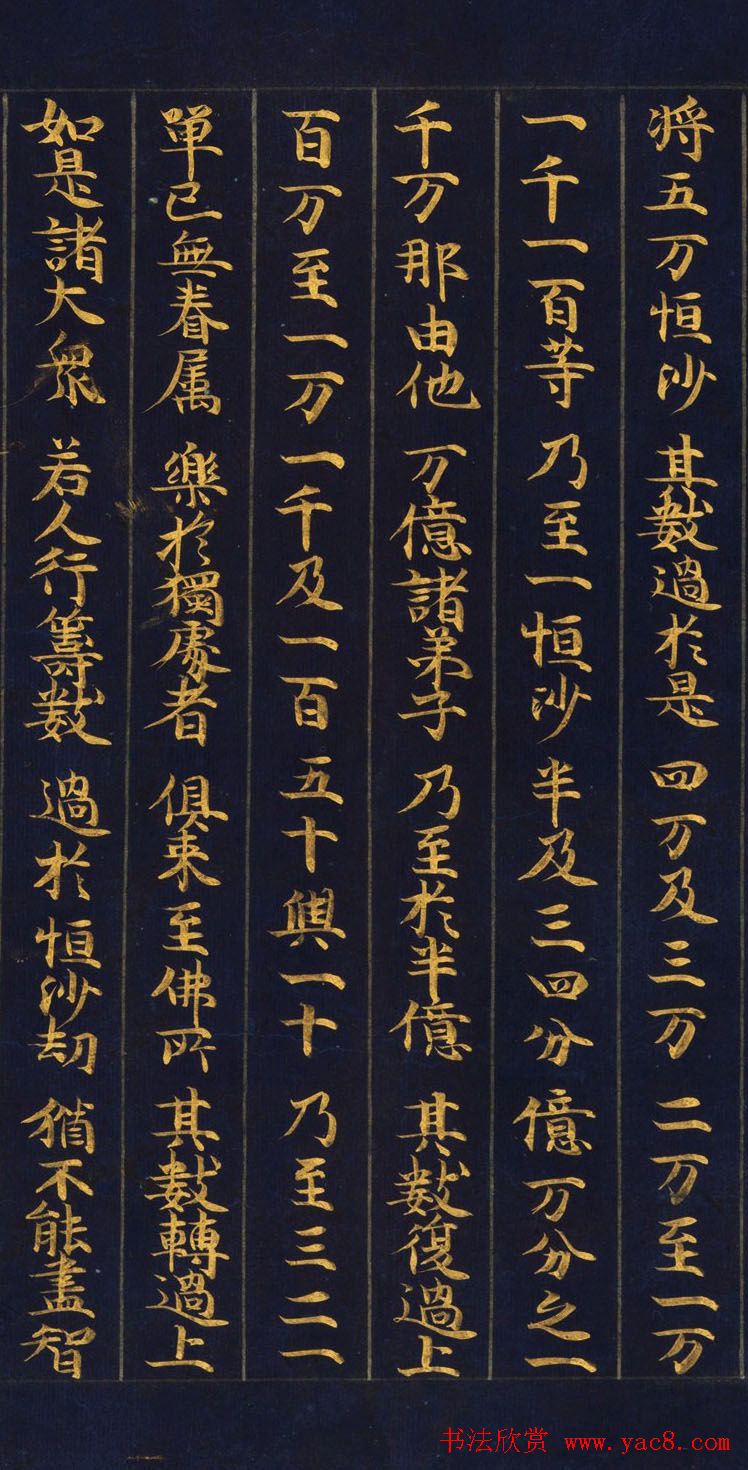 将五万恒沙 其數過於是 四万及三万 二万至一万
一千一百等 乃至一恒沙 半及三四分 億万分之一
千万那由他 万億諸弟子 乃至於半億 其數復過上
百万至一万 一千及一百 五十與一十 乃至三二一
單已無眷属 樂於獨處者 俱来至佛所 其數轉過上
如是諸大衆 若人行籌数 過於恒沙劫 猶不能盡智
书法欣赏 www.yac8.com